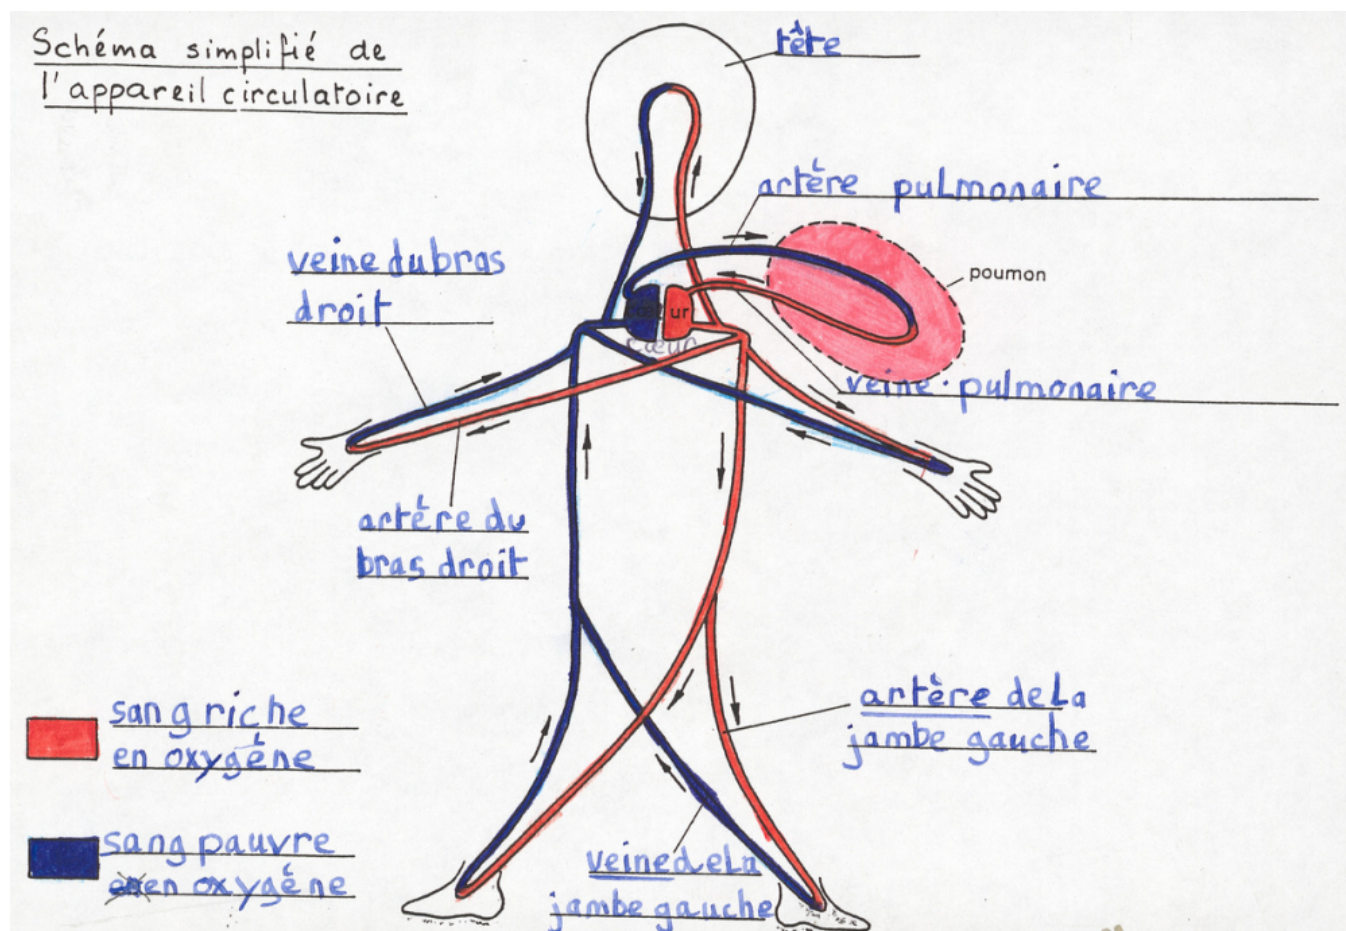 Schéma simplifié de
l'appareil circulatoire
tête
artère pulmonaire
poumon
veine du bras
droit
cœur
cœur
veine pulmonaire
artère du
bras droit
artère de la
jambe gauche
sang riche
en oxygéne
sang pauvre
en oxygéne
veine de la
jambe gauche